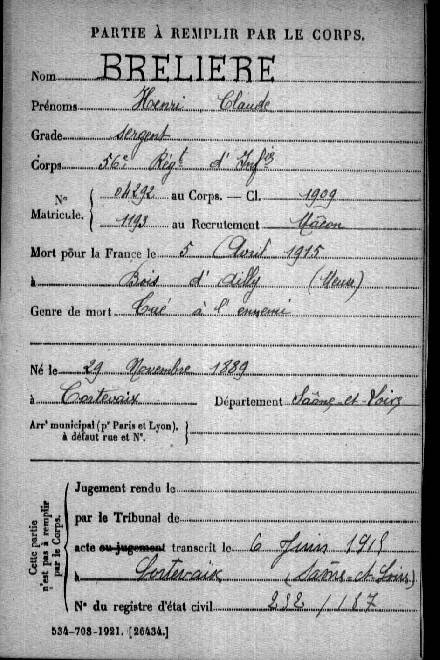 PARTIE À REMPLIR PAR LE CORPS.
Nom BRELIERE
Prénoms Henri Claude
Grade sergent
Corps 56e Régt d'Infie
No 04292 au Corps. — Cl. 1909
Matricule. 1193 au Recrutement Mâcon
Mort pour la France le 5 Avril 1915
à Bois d'Ailly (Meuse)
Genre de mort Tué à l'ennemi
Né le 29 Novembre 1889
à Cortevaix Département Saône-et-Loire
Arrt municipal (pr Paris et Lyon),
à défaut rue et No.
Cette partie
n'est pas à remplir
par le Corps.
Jugement rendu le
par le Tribunal de
acte ou jugement transcrit le 6 Juin 1915
à Cortevaix (Saône-et-Loire)
No du registre d'état civil 232/187
534-708-1921. [26434.]